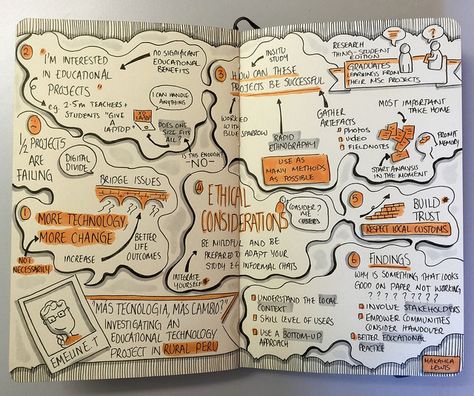 2
"I'M INTERESTED
IN EDUCATIONAL
PROJECTS"
eg 2-5m TEACHERS +
STUDENTS "GIVE
LAPTOP"
NO SIGNIFICANT
EDUCATIONAL
BENEFITS
CAN HANDLE
ANYTHING
DOES ONE
SIZE FITS
ALL?
IS THIS ENOUGH?
-NO-
1/2 PROJECTS
ARE
FAILING
DIGITAL
DIVIDE
BRIDGE ISSUES
1
MORE TECHNOLOGY
MORE CHANGE
NOT
NECESSARILY
INCREASE
BETTER
LIFE
OUTCOMES
EMELINE.T
"MÁS TECNOLOGIA, MÁS CAMBO?"
INVESTIGATING AN
EDUCATIONAL TECHNOLOGY
PROJECT IN RURAL PERU
3
HOW CAN THESE
PROJECTS BE SUCCESSFUL
INSITU
STUDY
WORKED
WITH
BLUE
SPARROW
RAPID
ETHNOGRAPHY
USE AS
MANY METHODS
AS POSSIBLE
GATHER
ARTEFACTS
PHOTOS
VIDEO
FIELDNOTES
4
ETHICAL
CONSIDERATIONS
BE MINDFUL AND BE
PREPARED TO ADAPT YOUR
STUDY eg INFORMAL CHATS
INTEGRATE
YOURSELF
RESEARCH
THING-STUDENT
EDITION
GRADUATES
LEARNINGS FROM
THEIR MSc PROJECTS
MOST IMPORTANT
TAKE HOME
PROMPT
MEMORY
START ANALYSIS
IN THE MOMENT
5
BUILD
TRUST
RESPECT LOCAL CUSTOMS
UNDERSTAND THE LOCAL
CONTEXT
SKILL LEVEL OF USERS
USE A BOTTOM-UP
APPROACH
6 FINDINGS
WHY IS SOMETHING THAT LOOKS
GOOD ON PAPER NOT WORKING
? ? ? ? ? ? ? ?
INVOLVE STAKEHOLDERS
EMPOWER COMMUNITIES
CONSIDER HANDOVER
BETTER EDUCATIONAL
PRACTICE
MAKAYLA
LEWIS